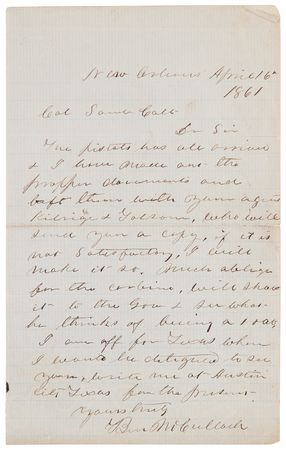 New Orleans April 16th
1861
Col Saml Colt
Dr Sir
The pistols has all arrived
& I have made out the
propper documents and
left them with your agts
Kitridge & Folsom, who will
send you a copy, if it is
not Satisfactory, I will
make it so. Much oblige
for the carbine, will show
it to the Gov & see what
he thinks of buying a 1000
I am off for Texas where
I would be delighted to see
you, write me at Austin
City Texas for the present
Yours truly
Ben McCulloch